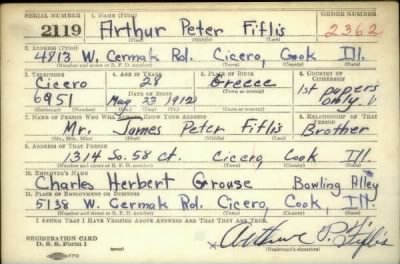 SERIAL NUMBER 1. NAME (Print) ORDER NUMBER
2119 Arthur Peter Fitlis 2362
(First) (Middle) (Last)
2. ADDRESS (Print)
4813 W. Cermak Rd. Cicero, Cook Ill.
(Number and street or R. F. D. number) (Town) (County) (State)
3. TELEPHONE 4. AGE IN YEARS 5. PLACE OF BIRTH 6. COUNTRY OF CITIZENSHIP
Cicero 28 Greece 1st papers
DATE OF BIRTH
6951 May 23 1912 only
(Exchange) (Number) (Mo.) (Day) (Yr.) (Town or county) (State or country)
7. NAME OF PERSON WHO WILL ALWAYS KNOW YOUR ADDRESS 8. RELATIONSHIP OF THAT PERSON
Mr. James Peter Fitlis Brother
(Mr., Mrs., Miss) (First) (Middle) (Last)
9. ADDRESS OF THAT PERSON
1314 So. 58 ct. Cicero Cook Ill.
(Number and street or R. F. D. number) (Town) (County) (State)
10. EMPLOYER'S NAME
Charles Herbert Grouse Bowling Alley
11. PLACE OF EMPLOYMENT OR BUSINESS
5138 W. Cermak Rd. Cicero, Cook, Ill.
(Number and street or R. F. D. number) (Town) (County) (State)
I AFFIRM THAT I HAVE VERIFIED ABOVE ANSWERS AND THAT THEY ARE TRUE.
REGISTRATION CARD
D. S. S. Form 1 Arthur P. Fitlis
(Registrant's signature)